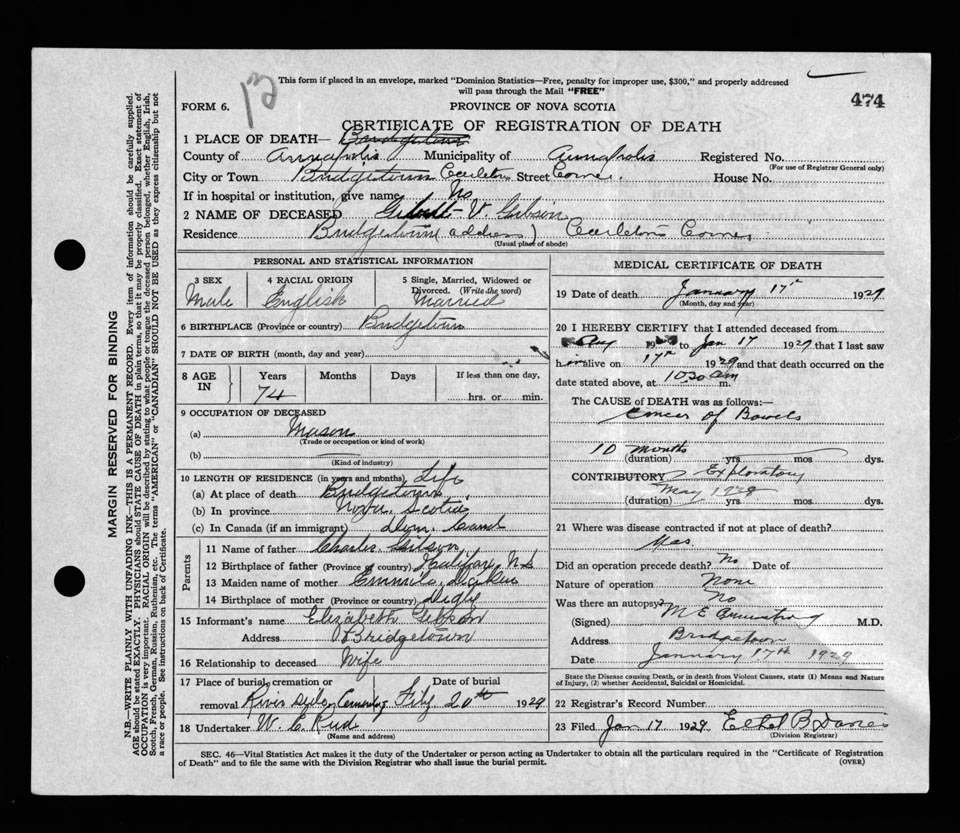 12
This form if placed in an envelope, marked "Dominion Statistics—Free, penalty for improper use, $300," and properly addressed
will pass through the Mail "FREE"
474
FORM 6.
PROVINCE OF NOVA SCOTIA
CERTIFICATE OF REGISTRATION OF DEATH
1 PLACE OF DEATH— Bridgetown
County of Annapolis Municipality of Annapolis Registered No.
(For use of Registrar General only)
City or Town Bridgetown Carleton Street Corner. House No.
If in hospital or institution, give name No
2 NAME OF DECEASED V. Gibson
Residence Bridgetown (address) Carleton Corner
(Usual place of abode)
PERSONAL AND STATISTICAL INFORMATION
3 SEX 4 RACIAL ORIGIN 5 Single, Married, Widowed or
Divorced. (Write the word)
Male English Married
6 BIRTHPLACE (Province or country) Bridgetown
7 DATE OF BIRTH (month, day and year)
8 AGE IN Years Months Days If less than one day,
74 hrs. or min.
9 OCCUPATION OF DECEASED
(a) Mason
(Trade or occupation or kind of work)
(b)
(Kind of industry)
10 LENGTH OF RESIDENCE (in years and months) Life
(a) At place of death Bridgetown
(b) In province Nova Scotia
(c) In Canada (if an immigrant) Dom.
Parents
11 Name of father Charles Gibson
12 Birthplace of father (Province or country) Halifax, N.S
13 Maiden name of mother
14 Birthplace of mother (Province or country) Digby
15 Informant's name Elizabeth Gibson
Address Bridgetown
16 Relationship to deceased Wife
17 Place of burial, cremation or Date of burial
removal River Side Cemetery 20th 1929
18 Undertaker W. E. Reed
(Name and address)
MEDICAL CERTIFICATE OF DEATH
19 Date of death January 17th 1929
(Month, day and year)
20 I HEREBY CERTIFY that I attended deceased from
Aug 19 to Jan 17 1929 that I last saw
him alive on 17th 1929 and that death occurred on the
date stated above, at 10 30 am m.
The CAUSE of DEATH was as follows:—
Cancer of Bowels
10 months yrs mos dys.
(duration)
CONTRIBUTORY Exploratory
May 1928
(duration) yrs mos dys.
21 Where was disease contracted if not at place of death?
Did an operation precede death? No Date of
Nature of operation None
Was there an autopsy? No
(Signed) M E Armstrong M.D.
Address Bridgetown
Date January 17th 1929
State the Disease causing Death, or in death from Violent Causes, state (1) Means and Nature
of Injury, (2) whether Accidental, Suicidal or Homicidal.
22 Registrar's Record Number
23 Filed Jan 17 1929 Ethel B.
(Division Registrar)
SEC. 46—Vital Statistics Act makes it the duty of the Undertaker or person acting as Undertaker to obtain all the particulars required in the "Certificate of Registration
of Death" and to file the same with the Division Registrar who shall issue the burial permit. (OVER)
MARGIN RESERVED FOR BINDING
N.B.—WRITE PLAINLY WITH UNFADING INK—THIS IS A PERMANENT RECORD. Every item of information should be carefully supplied.
AGE should be stated EXACTLY. PHYSICIANS should STATE CAUSE OF DEATH in plain terms, so that it may be properly classified. Exact statement of
OCCUPATION is very important. RACIAL ORIGIN will be described by stating to what people or tongue the deceased person belonged, whether English, Irish,
Scotch, French, German, Russian, Ruthenian, etc. The terms "AMERICAN" or "CANADIAN" SHOULD NOT BE USED as they express citizenship but not
a race or people. See instructions on back of Certificate.